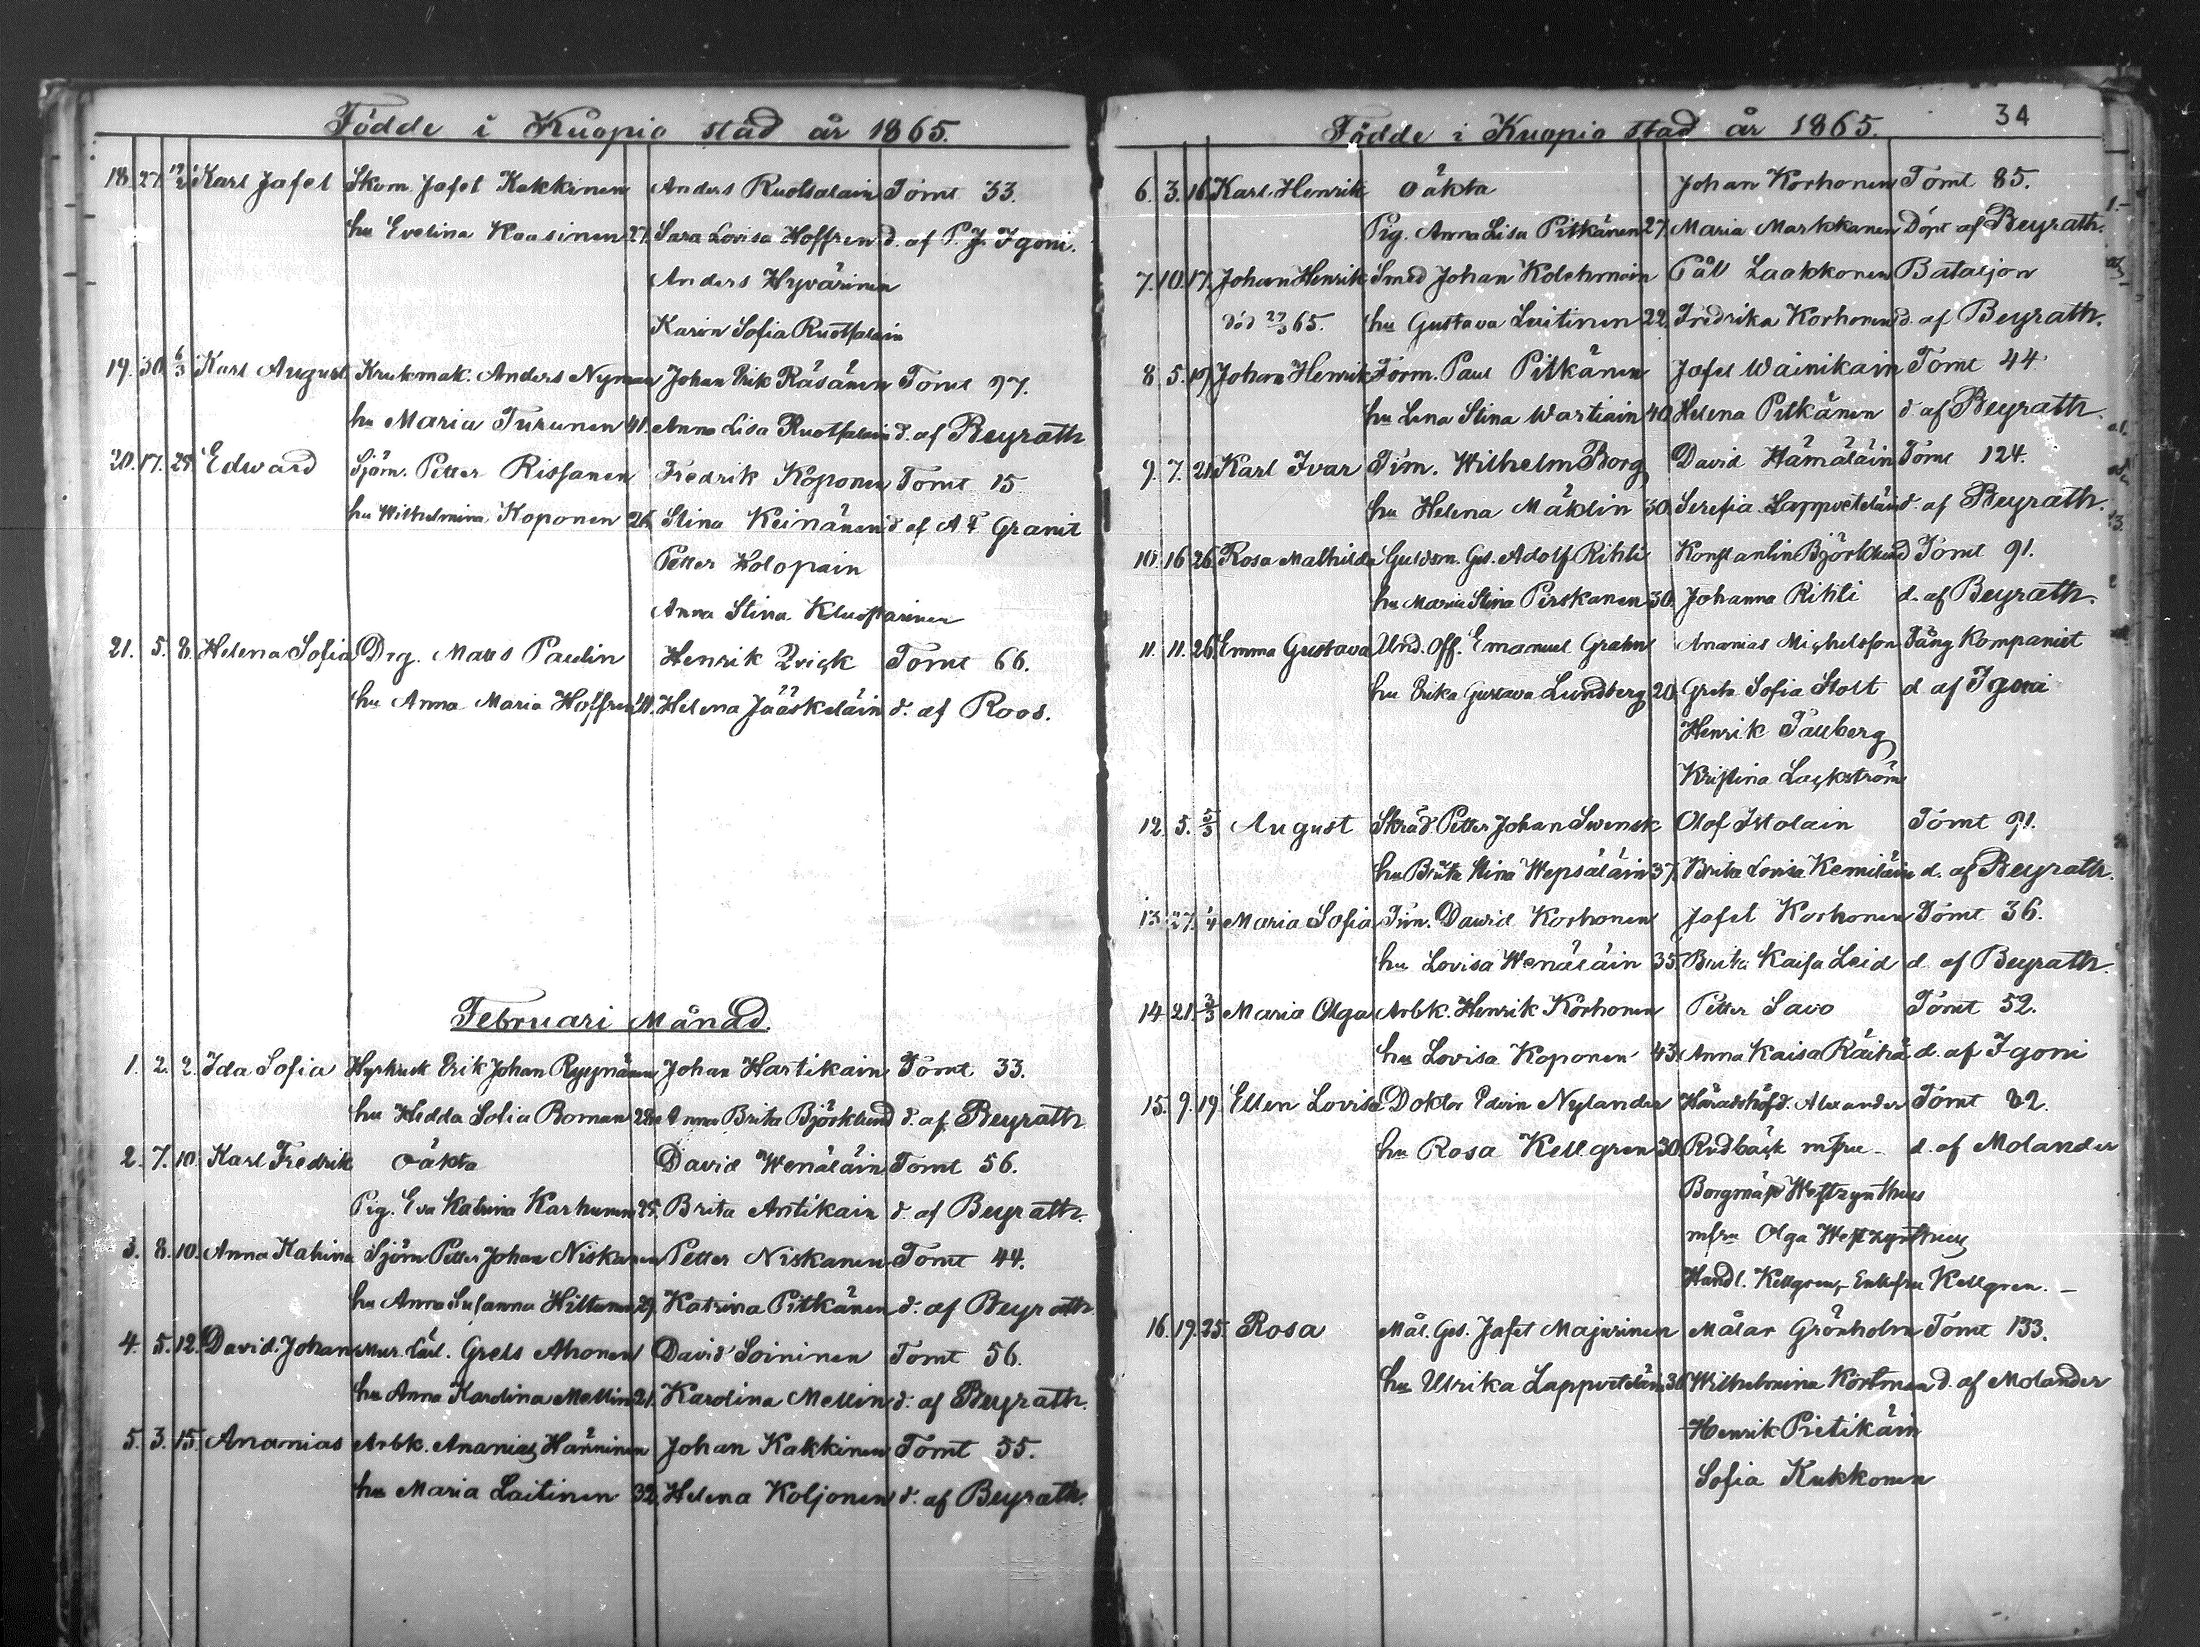 Födde i Kuopio stad år 1865.
18. 27. 12/2 Karl Jafet Skom. Jafet Kakkinen Anders Ruotsalain Tomt 33.
hu Evelina Kaasinen 27. Sara Lovisa Hoffren d. af P. J. Igoni.
Anders Hyvärinen
Karin Sofia Ruotsalain
19. 30. 6/3 Karl August Krukmak. Anders Nyman Johan Erik Räsänen Tomt 97.
hu Maria Turunen 41. Anna Lisa Ruotsalain d. af Beyrath
20. 17. 25. Edward Sjöm. Petter Rissanen Fredrik Koponen Tomt 15
hu Wilhelmina Koponen 26. Stina Keinänen d. af A F Granit
Petter Holopain
Anna Stina
21. 5. 8. Helena Sofia Drg. Matts Paulin Henrik Qvick Tomt 66.
hu Anna Maria Hoffren 41. Helena Jääskeläin d. af Roos.
Februari Månad.
1. 2. 2. Ida Sofia Erik Johan Ryynänen Johan Hartikain Tomt 33.
hu Hedda Sofia Roman 28. Anna Brita Björklund d. af Beyrath
2. 7. 10. Karl Fredrik oäkta David Wenäläin Tomt 56.
Pig. Eva Katrina Karhunen 25. Brita Antikain d. af Beyrath.
3. 8. 10. Anna Katrina Sjöm. Petter Johan Niskanen Petter Niskanen Tomt 44.
hu Anna Susanna Hiltunen 29. Katrina Pitkänen d. af Beyrath
4. 5. 12. David Johan Mur. Lärl. Grels Ahonen David Soininen Tomt 56.
hu Anna Karolina Mellin 21. Karolina Mellin d. af Beyrath.
5. 3. 15. Ananias Arbk. Ananias Hänninen Johan Kakkinen Tomt 55.
hu Maria Laitinen 32. Helena Koljonen d. af Beyrath.
Födde i Kuopio stad år 1865. 34
6. 3. 16. Karl Henrik oäkta Johan Korhonen Tomt 85.
Pig. Anna Lisa Pitkänen 27. Maria Markkanen Döpt af Beyrath.
7. 10. 17. Johan Henrik Smed Johan Kolehmain Påll Laakkonen Bataljon
död 27/3 65. hu Gustava Leutinen 22. Fredrika Korhonen d. af Beyrath.
8. 5. 19. Johan Henrik Torm. Paul Pitkänen Jafet Wainikain Tomt 44
hu Lena Stina Wartiain 40. Helena Pitkänen d. af Beyrath.
9. 7. 21. Karl Ivar Tim. Wilhelm Borg David Hämäläin Tomt 124.
hu Helena Mäklin 30. Serefia Lappveteläin d. af Beyrath.
10. 16. 26. Rosa Mathilda Guldsm. Ges. Adolf Rihli Konstantin Björklund Tomt 91.
hu Maria Stina Pirskanen 30. Johanna Rihli d. af Beyrath.
11. 11. 26. Emma Gustava Und. Off. Emanuel Grahn Ananias Michelsson Fång Kompaniet
hu Erika Gustava Lundberg 20. Greta Sofia Stolt d. af Igoni
Henrik Tallberg
Kristina Lackström
12. 5. 5/3 August Skräd. Petter Johan Swensk Olof Istolain Tomt 91.
hu Brita Stina Wepsäläin 37. Brita Lovisa Kemiläin d. af Beyrath.
13. 27. 1/4 Maria Sofia Tim. Dawid Korhonen Jafet Korhonen Tomt 36.
hu Lovisa Wenäläin 35. Brita Kaisa Leid d. af Beyrath.
14. 21. 3/3 Maria Olga Arbk. Henrik Korhonen Petter Savo Tomt 52.
hu Lovisa Koponen 43. Anna Kaisa Räihä d. af Igoni
15. 9. 19. Ellen Lovisa Doktor Edvin Nylander Häradshöfd. Alexander Tomt 82.
hu Rosa Kellgren 30. Rudbäck m fru - d. af Molander
Borgmäst Westzynthius
m fru Olga Westzynthius
Handl. Kellgren, - Enkefru Kellgren. -
16. 19. 25. Rosa Mål. Ges. Jafet Majurinen Målar Grönholm Tomt 133.
hu Ulrika Lappveteläin 36. Wilhelmina Kortman d. af Molander
Henrik Pietikäin
Sofia Kukkonen